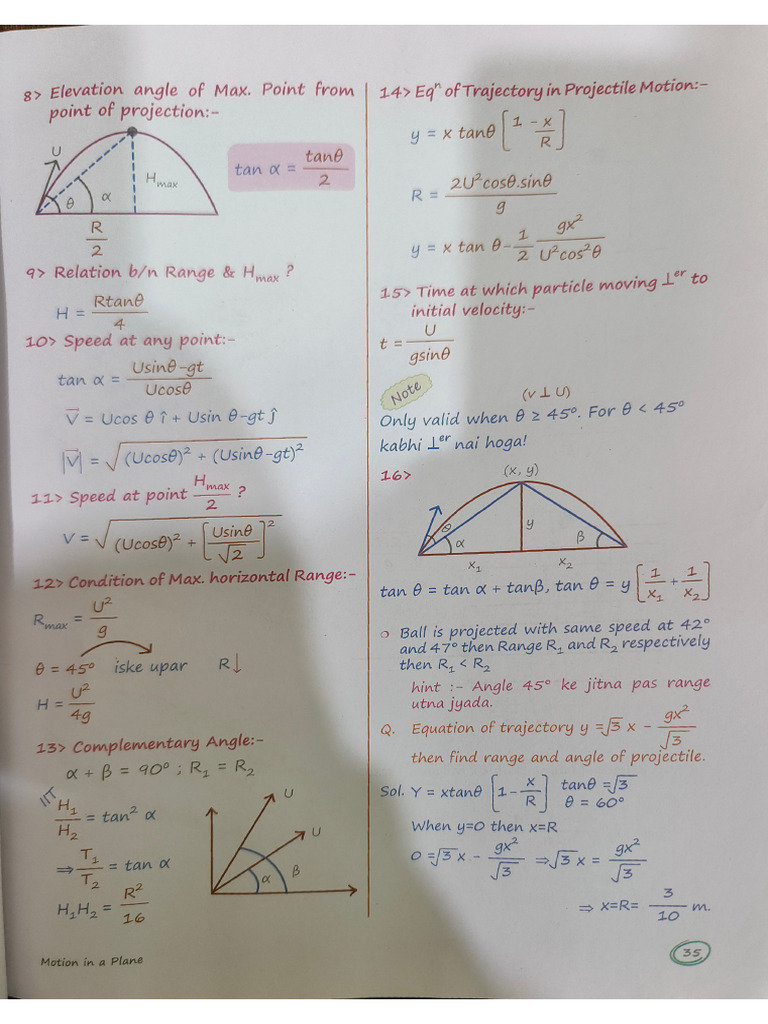 8> Elevation angle of Max. Point from
point of projection:-
U
θ
α
H_max
R/2
tan α = tanθ/2
9> Relation b/n Range & H_max ?
H = Rtanθ/4
10> Speed at any point:-
tan α = (Usinθ-gt)/(Ucosθ)
V⃗ = Ucos θ î + Usin θ-gt ĵ
|V⃗| = √((Ucosθ)² + (Usinθ-gt)²)
11> Speed at point H_max/2 ?
V = √((Ucosθ)² + [Usinθ/√2]²)
12> Condition of Max. horizontal Range:-
R_max = U²/g
θ = 45° iske upar R↓
H = U²/4g
13> Complementary Angle:-
α + β = 90° ; R₁ = R₂
IIT
H₁/H₂ = tan² α
⇒ T₁/T₂ = tan α
H₁H₂ = R²/16
U
U
α
β
Motion in a Plane
14> Eqⁿ of Trajectory in Projectile Motion:-
y = x tanθ [1 - x/R]
R = 2U²cosθ.sinθ/g
y = x tan θ - 1/2 gx²/U²cos²θ
15> Time at which particle moving ⊥er to
initial velocity:-
t = U/gsinθ
Note
(v ⊥ U)
Only valid when θ ≥ 45°. For θ < 45°
kabhi ⊥er nai hoga!
16>
(x, y)
θ
α
y
β
x₁
x₂
tan θ = tan α + tanβ, tan θ = y [1/x₁ + 1/x₂]
Ball is projected with same speed at 42°
and 47° then Range R₁ and R₂ respectively
then R₁ < R₂
hint :- Angle 45° ke jitna pas range
utna jyada.
Q. Equation of trajectory y =√3 x - gx²/√3
then find range and angle of projectile.
Sol. Y = xtanθ [1- x/R] tanθ =√3
θ = 60°
When y=0 then x=R
0 =√3 x - gx²/√3 ⇒√3 x = gx²/√3
⇒ x=R= 3/10 m.
35